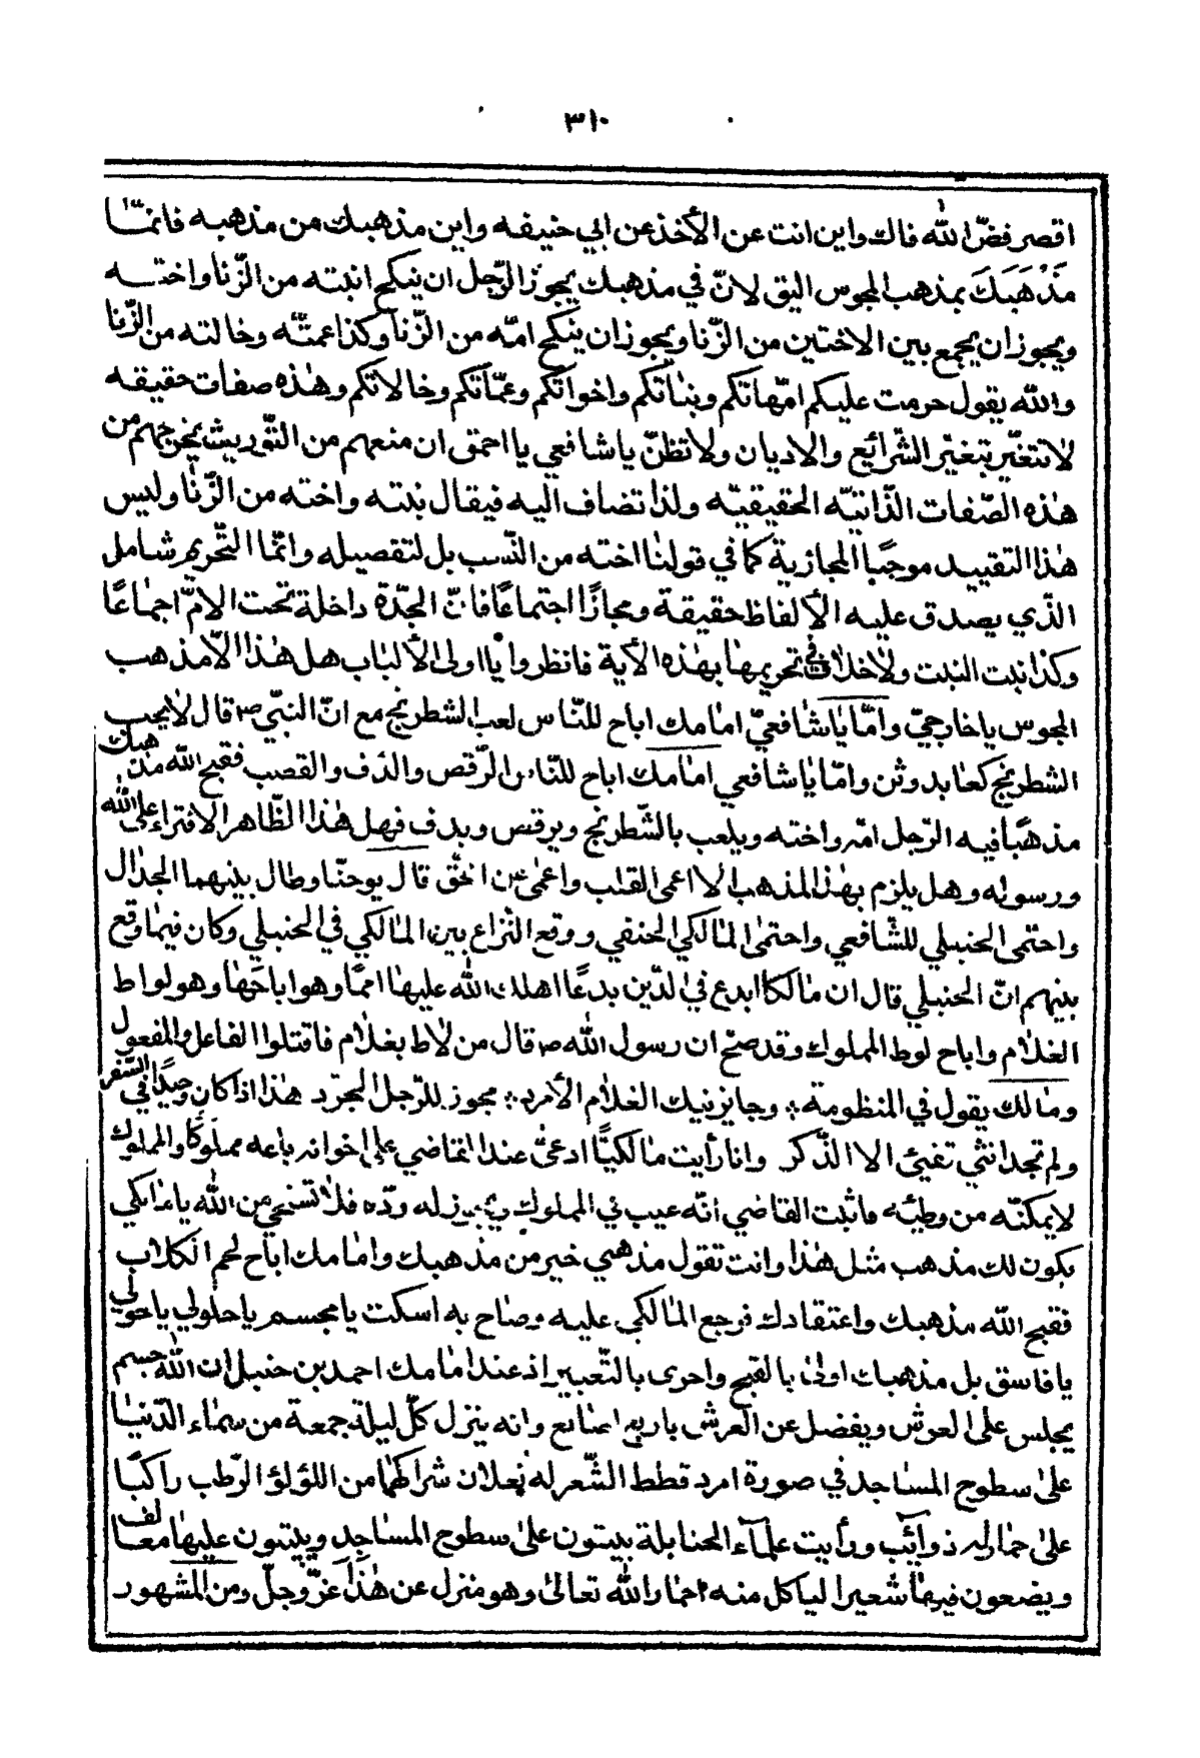 ٣١٠
اقصر فضّ الله فاك واين انت عن الأخذ عن ابي حنيفه واين مذهبك من مذهبه فانمّا
مَذْهَبَكَ بمذهب المجوس اليق لانّ في مذهبك يجوز الرّجل ان ينكح ابنته من الزّنا واختــه
ويجوز ان يجمع بين الاختين من الزّنا ويجوز ان ينكح امّه من الزّنا وكذا عمّته وخالته من الزّنا
والله يقول حرمت عليكم امّهاتكم وبناتكم واخواتكم وعمّاتكم وخالاتكم وهذه صفات حقيقه
لا تتغيّر بتغيّر الشّرائع والاديان ولا تظنّ يا شافعي يا احمق ان منعهم من التّوريث يخرجهم من
هذه الصّفات الذّاتيّه الحقيقيّه ولذا تضاف اليه فيقال بنته واخته من الزّنا وليس
هذا التقييد موجبًا المجازية كما في قولنا اخته من النّسب بل لتفصيله وانّما التّحريم شامل
الّذي يصدق عليه الألفاظ حقيقة ومجازًا اجتماعًا فانّ الجدّة داخلة تحت الامّ اجماعًا
وكذا بنت البنت ولا خلاف في تحريمها بهذه الأية فانظروا يا اولى الألباب هل هذا الّا مذهب
المجوس يا خارجيّ وامّا يا شافعيّ امامك اباح للنّاس لعب الشطرنج مع انّ النبيّ ص قال لا يحب
الشطرنج كعابد وثن وامّا يا شافعي امامك اباح للنّاس الرّقص والدّف والقصب فقبح الله مذهبك
مذهبًا فيه الرّجل امّه واخته ويلعب بالشّطرنج ويرقص ويدف فهل هذا الظّاهر الافتراء على الله
ورسوله وهل يلزم بهذا المذهب الا اعمى القلب واعمى عن الحّق قال يوحنّا وطال بينهما الجدال
واحتمى الحنبلي للشّافعي واحتمى المالكي الحنفي ووقع النّزاع بين المالكي في الحنبلي وكان فيما وقع
بينهم انّ الحنبلي قال ان مالكا ابدع في الدّين بدعًا اهلك الله عليها امما وهو اباحها وهو لواط
الغلام واباح لوط المملوك وقد صحّ ان رسول الله ص قال من لاط بغلام فاقتلوا الفاعل والمفعول
ومالك يقول في المنظومة ∴ وجايز نيك الغلام الأمرد ∴ مجوز للرّجل المجرّد هذا اذا كان وحيدًا في السّفر
ولم تجد انثى تفيئ الا الذّكر وانا رأيت مالكيًّا ادعى عند القاضي على اخوانه باعه مملوكًا والمملوك
لا يمكنّه من وطيه فاثبت القاضي انّه عيب في المملوك ويجوز له ردّه فلا تستحي من الله يا مالكي
يكون لك مذهب مثل هذا وانت تقول مذهبي خير من مذهبك وامامك اباح لحم الكلاب
فقبح الله مذهبك واعتقادك فرجع المالكي عليه وصاح به اسكت يا مجسم يا حلولي يا حولي
يا فاسق بل مذهبك اولى بالقبح واحرى بالتّعبير اذ عند امامك احمد بن حنبل ان الله جسم
يجلس على العرش ويفضل عن العرش باربع اصابع وانه ينزل كلّ ليلة جمعة من سماء الدّنيا
على سطوح المساجد في صورة امرد قطط الشّعر له نعلان شراكهما من اللؤلؤ الرّطب راكبًا
على حمار له ذوآئب ورأيت علمآء الحنابلة يبيتون على سطوح المساجد ويبيتون عليها معالف
ويضعون فيها شعيرا لياكل منه حمار الله تعالى وهو منزل عن هذا عزّ وجلّ ومن المشهور